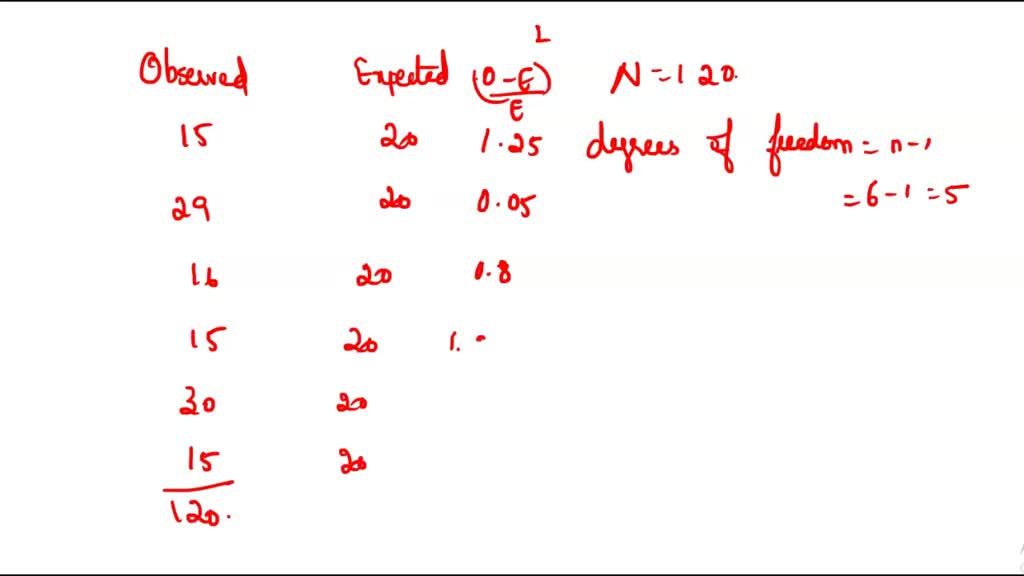 Observed Expected (O-E)²/E N = 120.
15 20 1.25 degrees of freedom = n-1
29 20 0.05 = 6-1 = 5
16 20 0.8
15 20 1.
30 20
15 20
120.